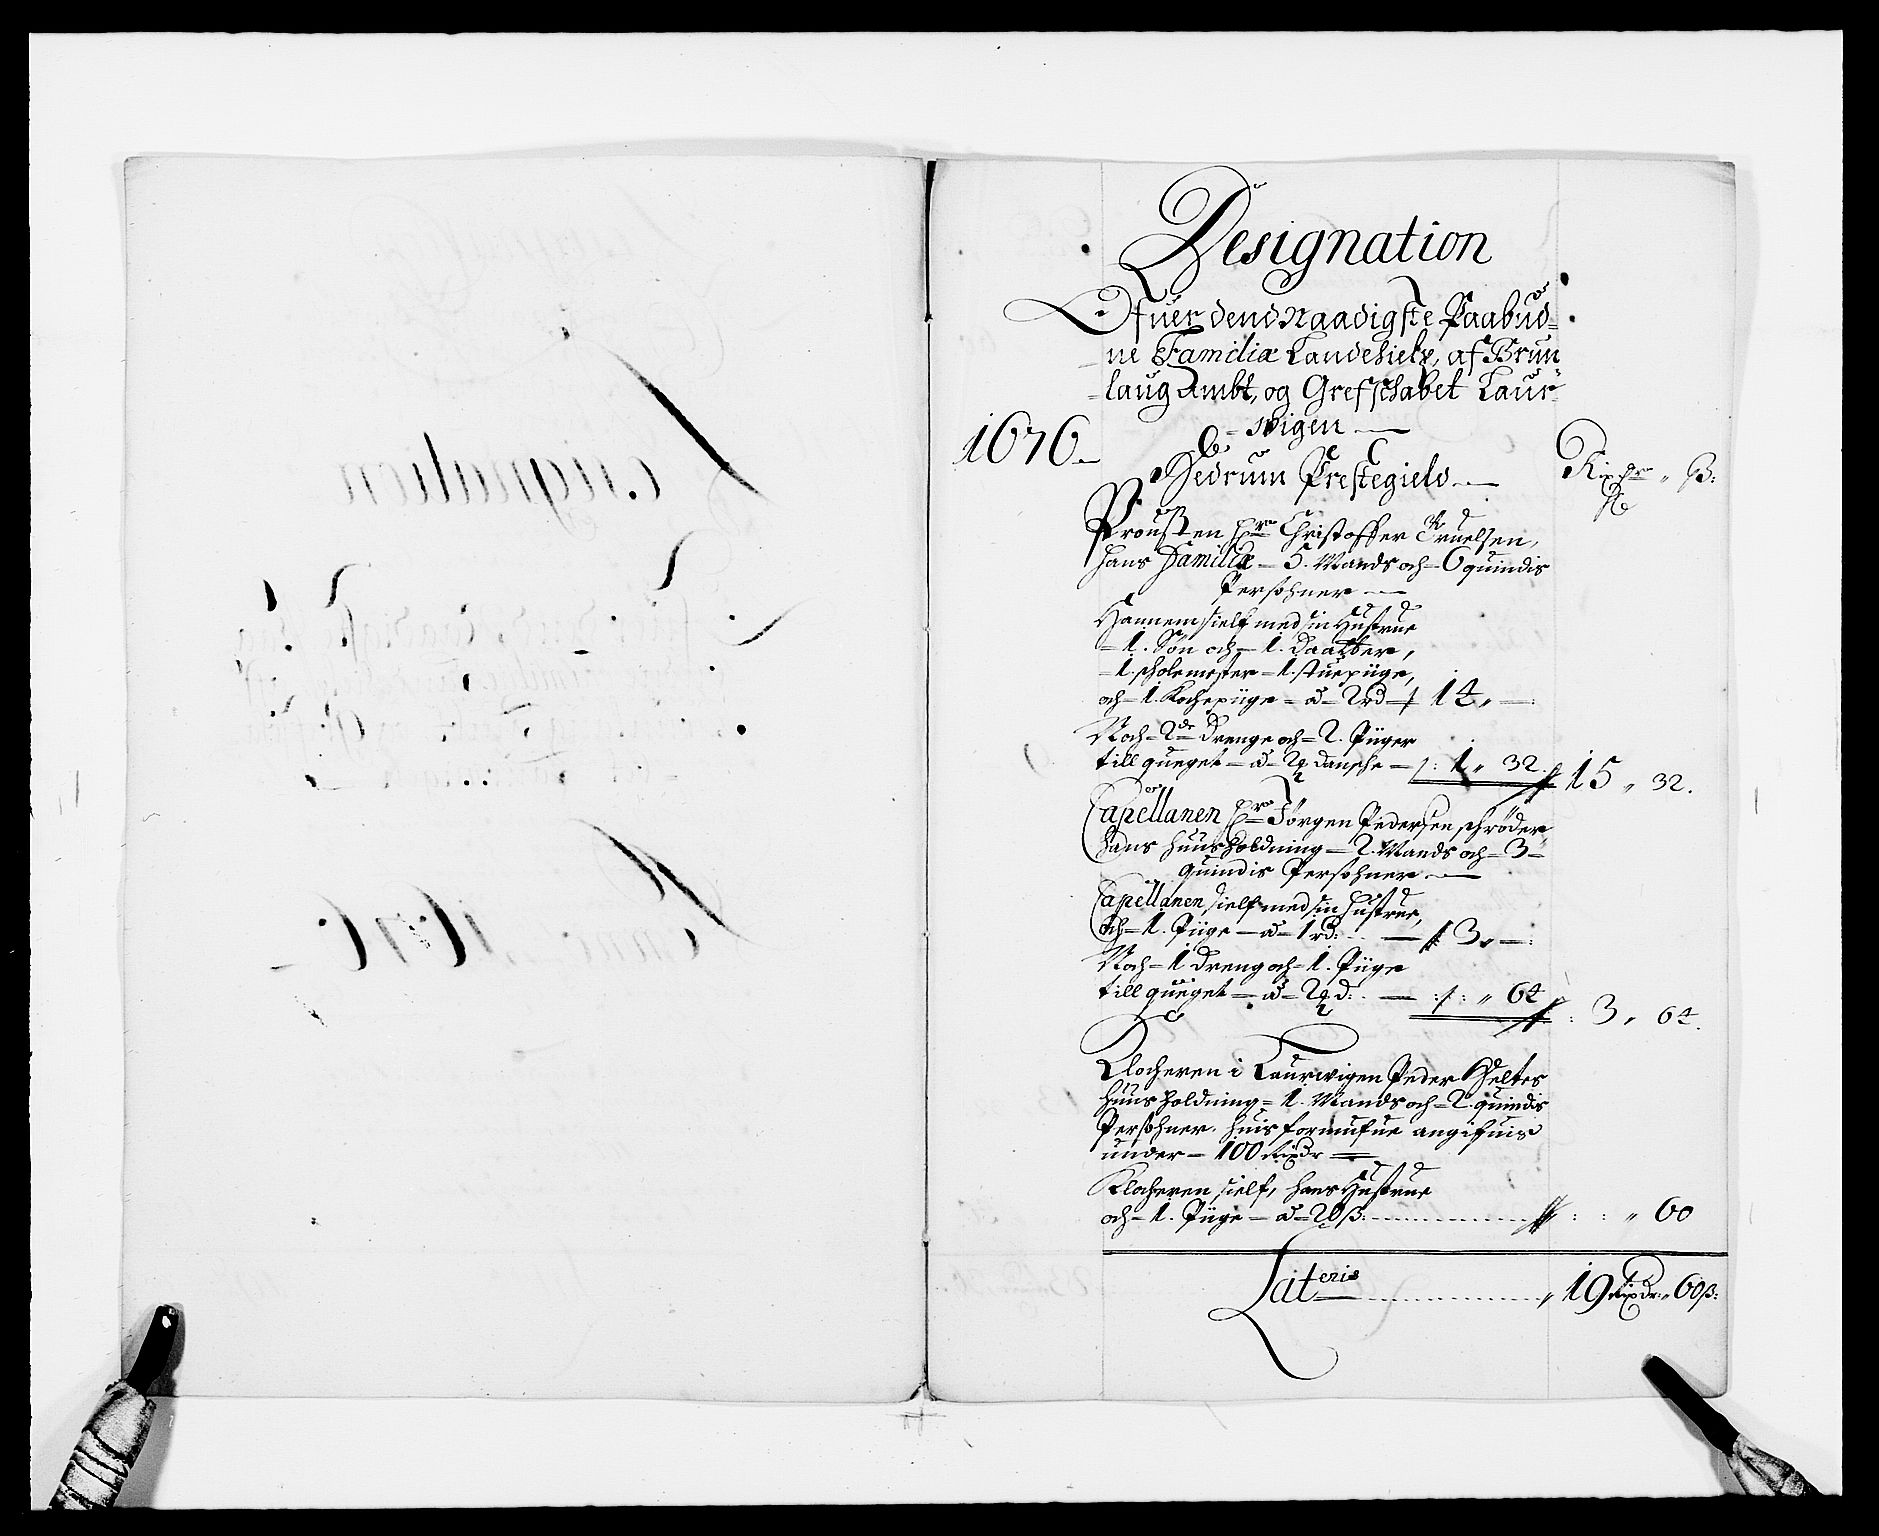 Designation
Ofuer dend Naadigste Paabud-
ne Familiæ Landehielp, af Brun
laug Ambt, og Grefschabet Laur-
1676 - wigen
Hedrum Prestegield Rixdr " ß:
Prousten Hr Christoffer Truelsen,
hans Familiæ - 5. Mands och - 6 quindis
Persohner
Hannem sielf med sin Hustrue
- 1. Søn och - 1. Daatter,
- 1. scholemester - 1. stuepiige,
och - 1. Kochepiige - ad - 2 rd - 14 " -
Noch - 2de Drenge och - 2. Piiger
till queget - ad - 2 danske - 1 " 32. 15 " 32.
Capellanen Hr Jörgen Pedersen schröder
hans huusholdning - 2. Mands och - 3 -
quindis Persohner
Capellanen sielf med sin Hustrue,
och - 1. Piige - ad - 1 rd: - 3 " -:
Noch - 1 Dreng och - 1. Piige
till queget - ad - 2 d: - " 64 3 " 64.
Klocheren i Laurwigen Peder Heltes
huusholdning - 1. Mands och - 2 quindis
Persohner. huis formufue angifuis
under - 100 Rixdr
Klocheren sielf, hans Hustrue
och - 1. Piige - ad - 20 ß: " 60
Lateris 19 Rixdr: " 60 ß: